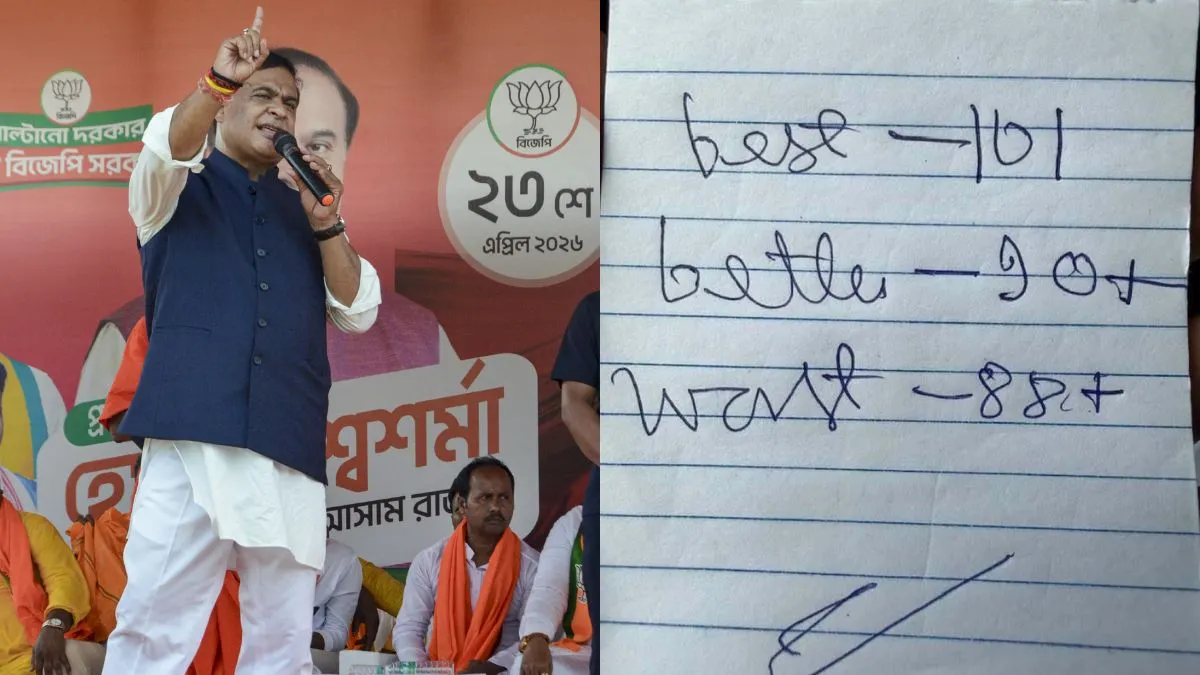 পাল্টানো দরকার,
বিজেপি সরকার
বিজেপি
২৩ শে
এপ্রিল ২০২৬
শ্বশর্মা
আসাম
best — 101
better — 90+
worst — 88+